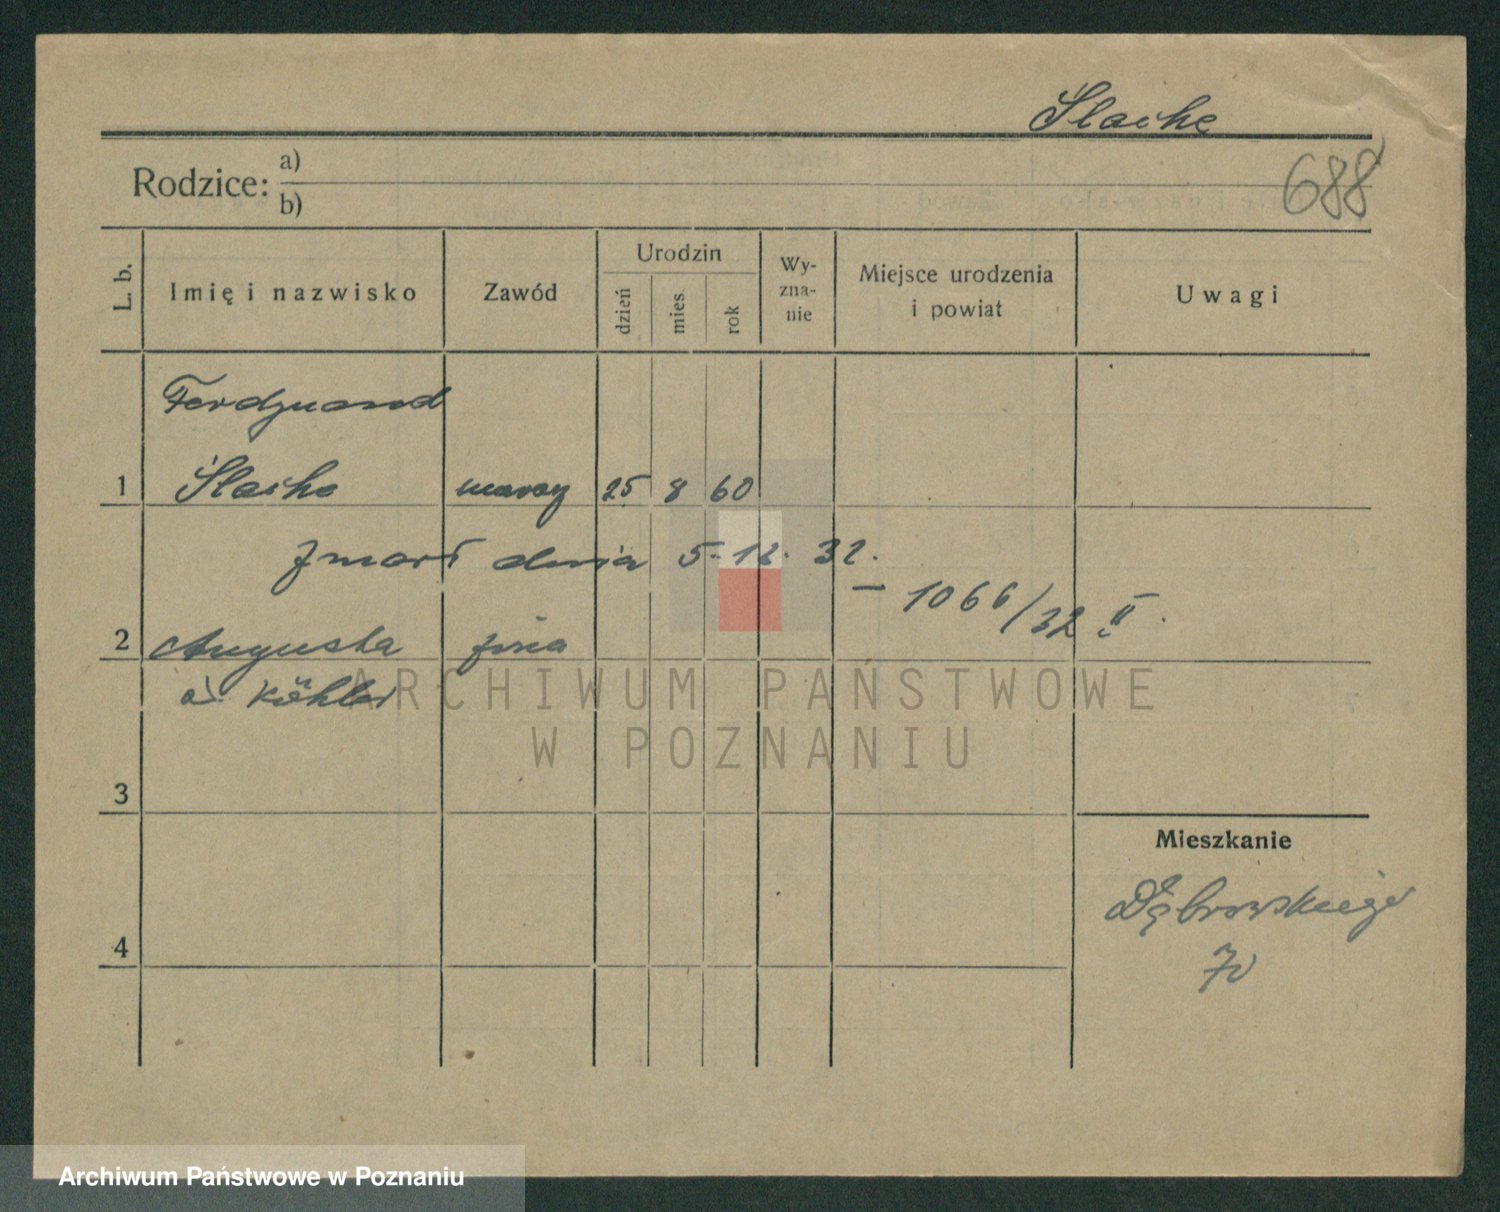 Ślaske
688
Rodzice: a)
b)
L. b. Imię i nazwisko Zawód Urodzin dzień mies. rok Wy-zna-nie Miejsce urodzenia i powiat Uwagi
Ferdynand
1 25 8 60
zmarł dnia 5. 12. 32.
— 1066/32 II.
2 Augusta żona
Köhler
ARCHIWUM PAŃSTWOWE
W POZNANIU
3
Mieszkanie
Dąbrowskiego
70
4
Archiwum Państwowe w Poznaniu